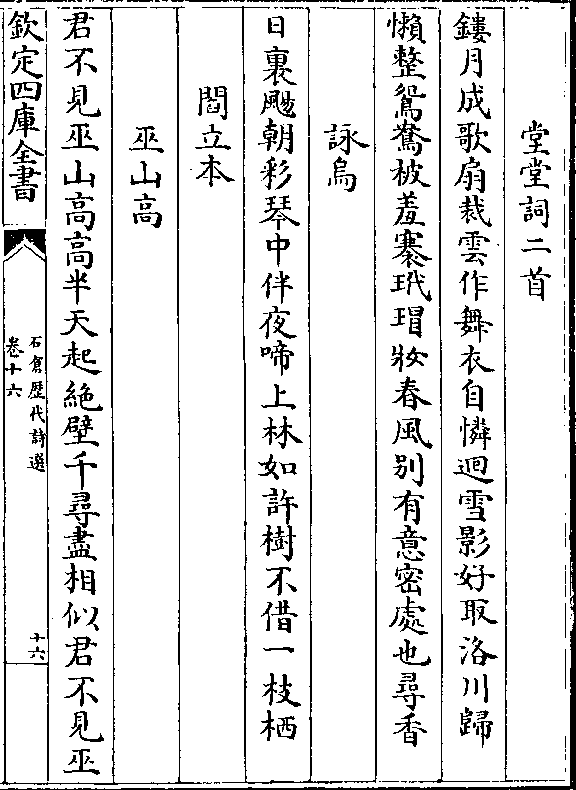 堂堂詞二首
鏤月成歌扇裁雲作舞衣自憐迴雪影好取洛川歸
懶整鴛鴦被羞褰玳瑁牀春風别有意密處也尋香
詠烏
日裏颺朝彩琴中伴夜啼上林如許樹不借一枝栖
閻立本
巫山高
君不見巫山高高半天起絶壁千尋盡相似君不見巫
欽定四庫全書
石倉歴代詩選
卷十六
十六